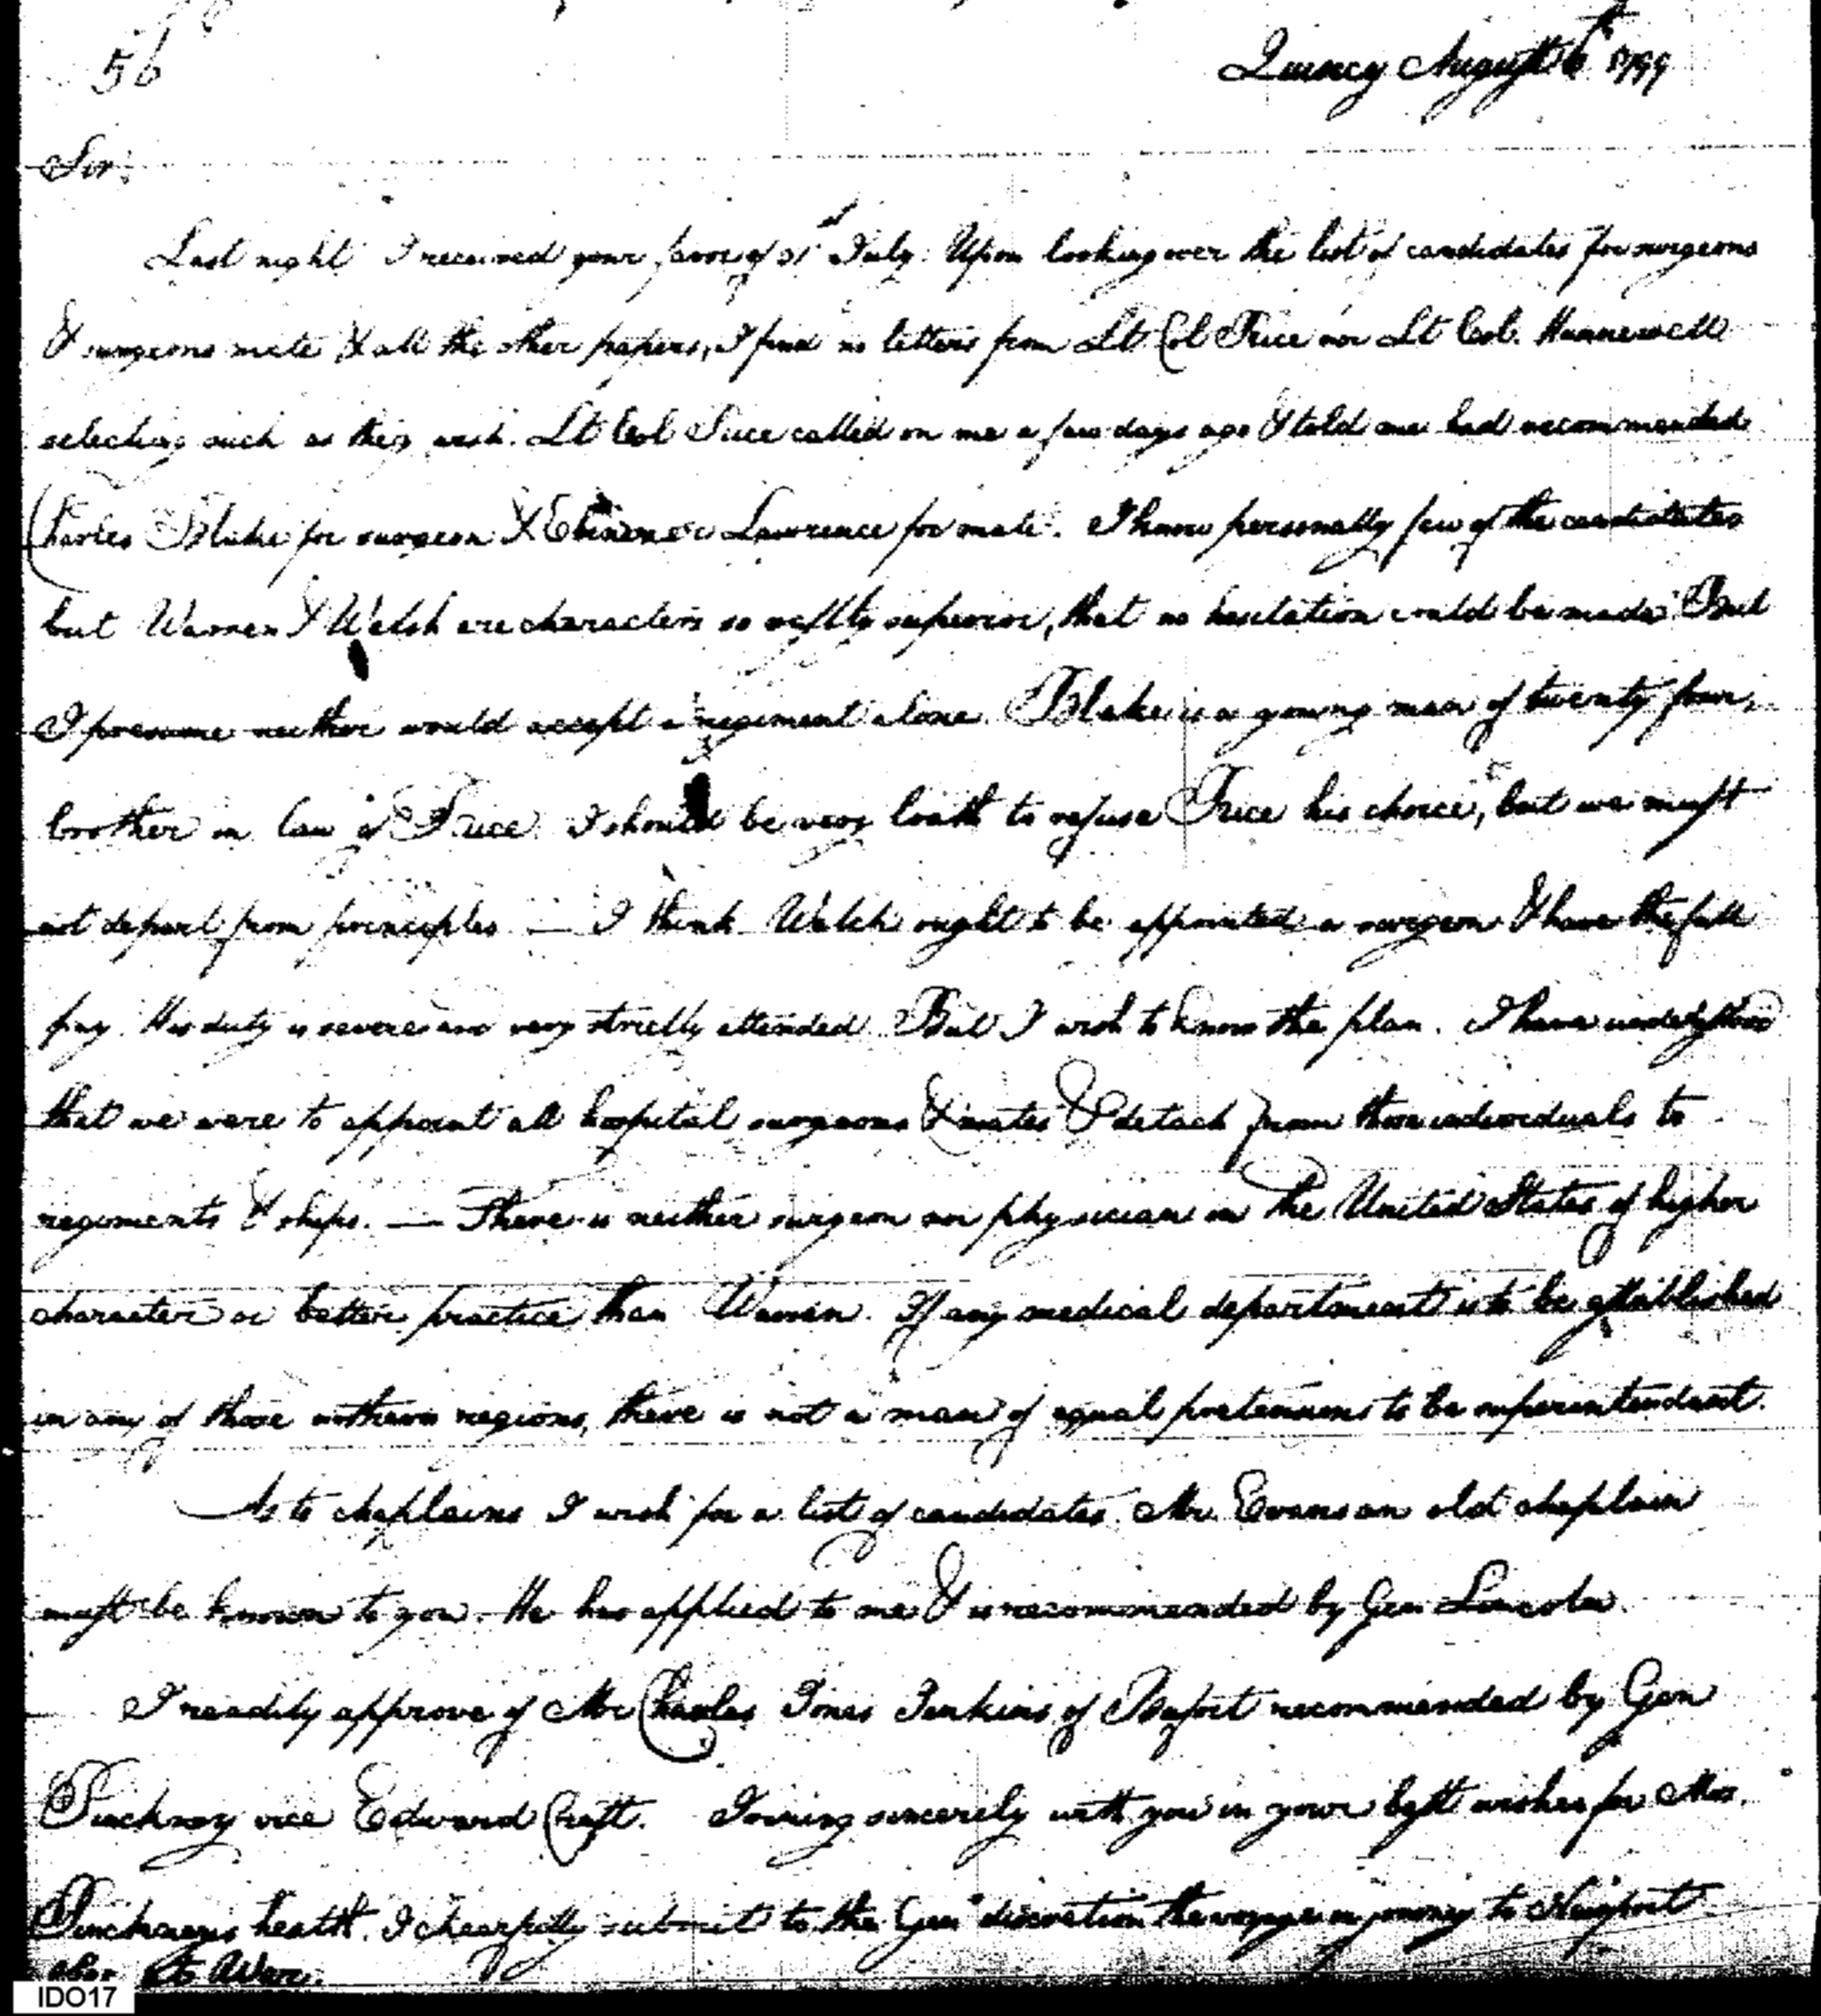 56
Quincy August 6th 1799
Sir:
Last night I received your favor of 31st July. Upon looking over the list of candidates for surgeons
& surgeons mate & all the other papers, I find no letters from Lt Col Rice nor Lt Col. Hunnewell
selecting such as they wish. Lt Col Rice called on me a few days ago & told me had recommended
Charles Blake for surgeon & Ebenezer Lawrence for mate. I know personally few of the candidates
but Warren & Welsh are characters so vastly superior, that no hesitation could be made. But
I presume neither would accept a regiment alone. Blake is a young man of twenty four,
brother in law of Rice. I should be very loath to refuse Rice his choice, but we must
not depart from principles — I think Welch ought to be appointed a surgeon & have the full
pay. His duty is severe and very strictly attended. But I wish to know the plan. I have understood
that we were to appoint all hospital surgeons & mates & detach from those individuals to
regiments & ships. — There is neither surgeon nor physician in the United States of higher
character or better practice than Warren. If any medical department is to be established
in any of those northern regions, there is not a man of equal pretensions to be superintendant.
As to chaplains I wish for a list of candidates. Mr. Evans an old chaplain
must be known to you. He has applied to me & is recommended by Gen Lincoln.
I readily approve of Mr Charles Jones Jenkins of Bufort recommended by Gen
Pinckney vice Edward Croft. Joining sincerely with you in your best wishes for Mrs.
Pinckneys health. I chearfully submit to the Gen discretion the voyage or journey to Newport.
of War.
IDO17